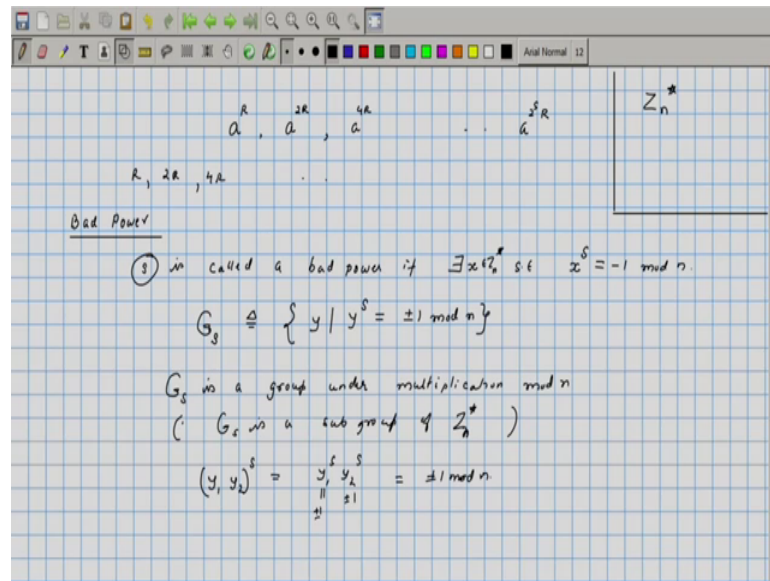 T Arial Normal 12
Z_n^*
a^R , a^{2R} , a^{4R} . . a^{2^S R}
R, 2R, 4R . .
Bad Power
s is called a bad power if ∃x∈Z_n^* s.t x^s = -1 mod n.
G_s ≜ { y | y^s = ±1 mod n}
G_s is a group under multiplication mod n
(: G_s is a subgroup of Z_n^* )
(y_1 y_2)^s = y_1^s y_2^s = ±1 mod n.
|| ±1
±1